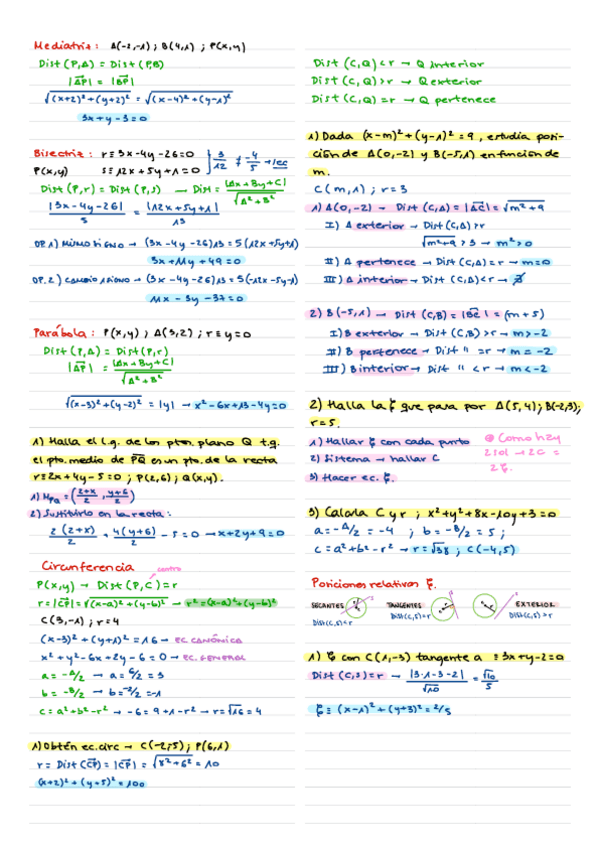 Mediatriz: A(-2,-1); B(4,1); P(x,y)
Dist (P,A) = Dist (P,B)
|AP| = |BP|
√(x+2)²+(y+2)² = √(x-4)²+(y-1)²
3x+y-3=0
Bisectriz: r≡3x-4y-26=0 } 3/12 ≠ -4/5 → sec
P(x,y) s≡12x+5y+1=0
Dist (P,r) = Dist (P,s) → Dist = |Ax+By+C| / √A²+B²
|3x-4y-26| / 5 = |12x+5y+1| / 13
OP. 1) MISMO SIGNO → (3x-4y-26)13 = 5(12x+5y+1)
3x+11y+49=0
OP. 2) CAMBIO SIGNO → (3x-4y-26)13 = 5(-12x-5y-1)
11x-3y-37=0
Parábola: P(x,y); A(3,2); r≡y=0
Dist (P,A) = Dist (P,r)
|AP| = |Ax+By+C| / √A²+B²
√(x-3)²+(y-2)² = |y| → x²-6x+13-4y=0
1) Halla el l.g. de los ptos. plano Q t.q.
el pto. medio de PQ es un pto. de la recta
r≡2x+4y-5=0; P(2,6); Q(x,y).
1) M_PQ = (2+x/2, y+6/2)
2) Sustituirlo en la recta:
2(2+x)/2 + 4(y+6)/2 - 5 = 0 → x+2y+9=0
Circunferencia
centro
P(x,y) → Dist (P,C) = r
r = |CP| = √(x-a)²+(y-b)² → r²=(x-a)²+(y-b)²
C(3,-1); r=4
(x-3)²+(y+1)²=16 → EC. CANÓNICA
x²+y²-6x+2y-6=0 → EC. GENERAL
a = -A/2 → a = 6/2 = 3
b = -B/2 → b = -2/2 = -1
c = a²+b²-r² → -6 = 9+1-r² → r = √16 = 4
1) Obtén ec. circ → C(-2,5); P(6,1)
r = Dist (CP) = |CP| = √8²+6² = 10
(x+2)²+(y-5)²=100
Dist (C,Q) < r → Q interior
Dist (C,Q) > r → Q exterior
Dist (C,Q) = r → Q pertenece
1) Dada (x-m)²+(y-1)²=9, estudia posi-
ción de A(0,-2) y B(-5,1) en función de
m.
C(m,1); r=3
1) A(0,-2) → Dist (C,A) = |AC| = √m²+9
I) A exterior → Dist (C,A) > r
√m²+9 > 3 → m² > 0
II) A pertenece → Dist (C,A) = r → m=0
III) A interior → Dist (C,A) < r → ∄
2) B(-5,1) → Dist (C,B) = |BC| = (m+5)
I) B exterior → Dist (C,B) > r → m > -2
II) B pertenece → Dist " = r → m = -2
III) B interior → Dist " < r → m < -2
2) Halla la ξ que pasa por A(5,4); B(-2,3);
r=5.
1) Hallar ξ con cada punto
2) Sistema → hallar C
3) Hacer ec. ξ.
Como hay
2 sol → 2C =
2ξ.
3) Calcula C y r; x²+y²+8x-10y+3=0
a = -A/2 = -4; b = -B/2 = 5;
c = a²+b²-r² → r = √38; C(-4,5)
Posiciones relativas ξ.
SECANTES
Dist(C,s)<r
TANGENTES
Dist(C,s)=r
EXTERIOR
Dist(C,s)>r
1) ξ con C(1,-3) tangente a ≡3x+y-2=0
Dist (C,s) = r → |3·1-3-2| / √10 = √10/5
ξ≡ (x-1)²+(y+3)²=2/5